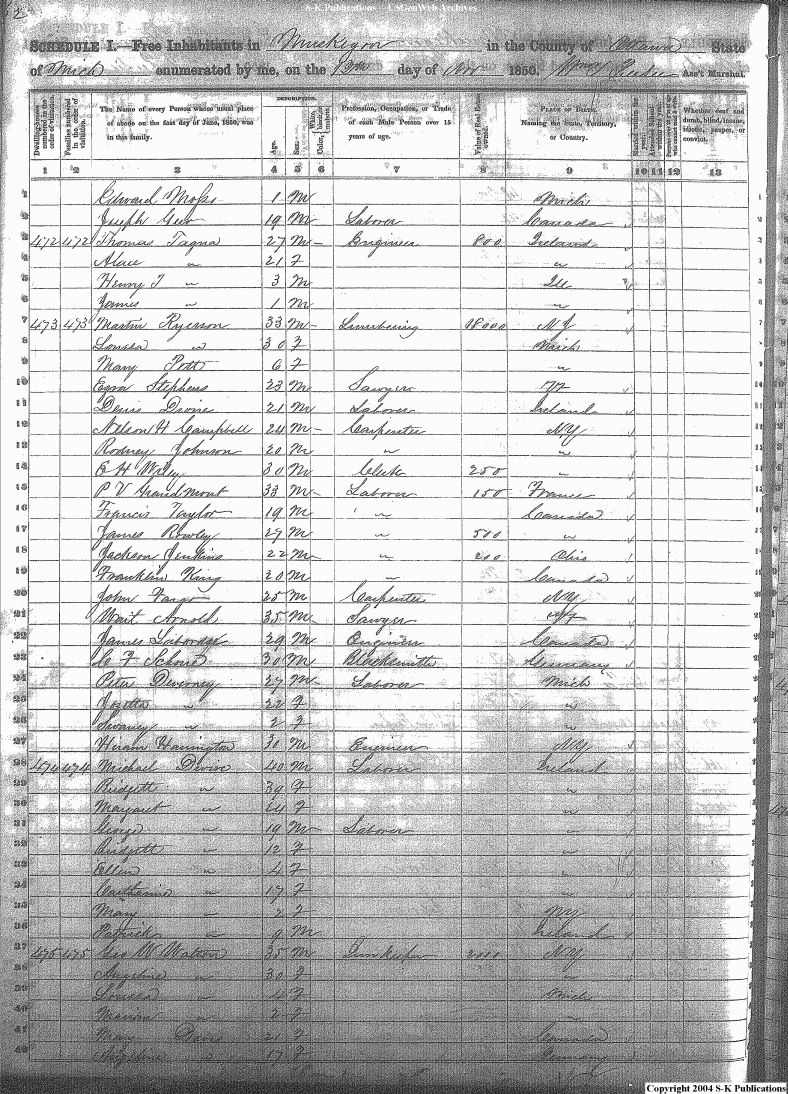 S-K Publications - USGenWeb Archives
SCHEDULE I.—Free Inhabitants in Muskegon in the County of Ottawa State
of Mich enumerated by me, on the 12th day of Nov 1850. Henry Ass't Marshal.
Dwelling-houses numbered in the order of visitation.
Families numbered in the order of visitation.
The Name of every Person whose usual place of abode on the first day of June, 1850, was in this family.
DESCRIPTION.
Age.
Sex.
Color, White, black, or mulatto.
Profession, Occupation, or Trade of each Male Person over 15 years of age.
Value of Real Estate owned.
PLACE OF BIRTH. Naming the State, Territory, or Country.
Married within the year.
Attended School within the year.
Persons over 20 y'rs of age who cannot read & write.
Whether deaf and dumb, blind, insane, idiotic, pauper, or convict.
1 2 3 4 5 6 7 8 9 10 11 12 13
1 Edward Moss 1 M Mich
2 Joseph 19 M Laborer Canada
3 472 472 Thomas Tagna 27 M Engineer 800 Ireland
4 Alace " 21 F "
5 Henry T " 3 M Ill
6 James " 1 M "
7 473 473 Martin Ryerson 33 M Lumbering 18000 NJ
8 Louisa " 30 F Mich
9 Mary Pett 6 F "
10 Ezra Stephens 23 M Sawyer
11 Denis Divine 21 M Laborer Ireland
12 Nelson H Campbell 24 M Carpenter NY
13 Rodney Johnson 20 M " "
14 E H Wiley 30 M Clerk 250 "
15 P V Grandmont 33 M Laborer 150 France
16 Francis Taylor 19 M " Canada
17 James Rowley 27 M " 500 "
18 Jackson Jenkins 22 M " 200 Ohio
19 Franklin King 20 M " Canada
20 John Fargo 25 M Carpenter NY
21 Wait Arnold 35 M Sawyer
22 James 29 M Engineer Canada
23 C F 30 M Blacksmith Germany
24 Peter Deverney 27 M Laborer Mich
25 Josette " 22 F "
26 " 2 F "
27 Hiram Harrington 30 M Engineer NY
28 474 474 Michael Divine 40 M Laborer Ireland
29 Bridgett " 39 F "
30 Margaret " 24 F "
31 George " 19 M Laborer "
32 Bridgett " 12 F "
33 Ellen " 4 F "
34 Catharine " 17 F "
35 Mary " 2 F NY
36 Patrick " 9 M Ireland
37 475 475 Geo W Watson 35 M Innkeeper 2000 NY
38 Angeline " 30 F "
39 Louisa " 4 F Mich
40 Marion " 2 F "
41 Mary Davis 21 F Canada
42 Angeline " 17 F Germany
Copyright 2004 S-K Publications